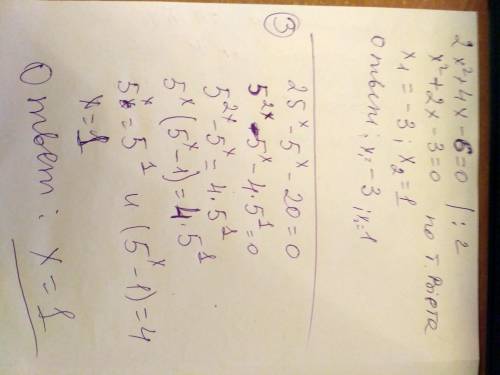 2x²+4x-6=0 | :2
x²+2x-3=0 по т. Виета
x₁=-3; x₂=1
Ответ: x=-3; x=1
③
25ˣ-5ˣ-20=0
5²ˣ-5ˣ-4·5¹=0
5²ˣ-5ˣ=4·5¹
5ˣ(5ˣ-1)=4·5¹
5ˣ=5¹ и (5ˣ-1)=4
x=1
Ответ: x=1